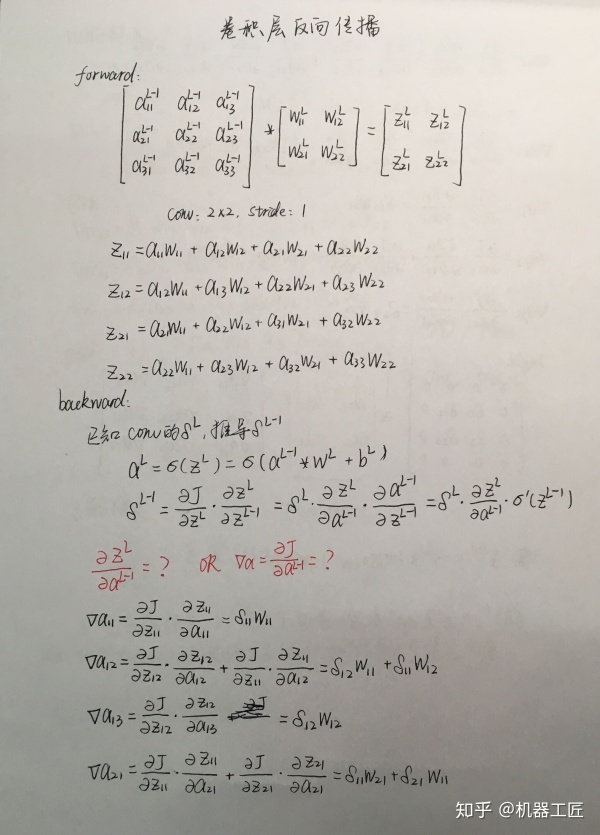 卷积层反向传播
forward:
[a₁₁ᴸ⁻¹ a₁₂ᴸ⁻¹ a₁₃ᴸ⁻¹; a₂₁ᴸ⁻¹ a₂₂ᴸ⁻¹ a₂₃ᴸ⁻¹; a₃₁ᴸ⁻¹ a₃₂ᴸ⁻¹ a₃₃ᴸ⁻¹] * [W₁₁ᴸ W₁₂ᴸ; W₂₁ᴸ W₂₂ᴸ] = [Z₁₁ᴸ Z₁₂ᴸ; Z₂₁ᴸ Z₂₂ᴸ]
conv: 2×2, stride: 1
Z₁₁ = a₁₁W₁₁ + a₁₂W₁₂ + a₂₁W₂₁ + a₂₂W₂₂
Z₁₂ = a₁₂W₁₁ + a₁₃W₁₂ + a₂₂W₂₁ + a₂₃W₂₂
Z₂₁ = a₂₁W₁₁ + a₂₂W₁₂ + a₃₁W₂₁ + a₃₂W₂₂
Z₂₂ = a₂₂W₁₁ + a₂₃W₁₂ + a₃₂W₂₁ + a₃₃W₂₂
backward:
已知 conv的δᴸ, 推导δᴸ⁻¹
aᴸ = σ(zᴸ) = σ(aᴸ⁻¹ * Wᴸ + bᴸ)
δᴸ⁻¹ = ∂J/∂zᴸ · ∂zᴸ/∂zᴸ⁻¹ = δᴸ · ∂zᴸ/∂aᴸ⁻¹ · ∂aᴸ⁻¹/∂zᴸ⁻¹ = δᴸ · ∂zᴸ/∂aᴸ⁻¹ · σ'(zᴸ⁻¹)
∂zᴸ/∂aᴸ⁻¹ = ? OR ∇a = ∂J/∂aᴸ⁻¹ = ?
∇a₁₁ = ∂J/∂z₁₁ · ∂z₁₁/∂a₁₁ = δ₁₁W₁₁
∇a₁₂ = ∂J/∂z₁₂ · ∂z₁₂/∂a₁₂ + ∂J/∂z₁₁ · ∂z₁₁/∂a₁₂ = δ₁₂W₁₁ + δ₁₁W₁₂
∇a₁₃ = ∂J/∂z₁₂ · ∂z₁₂/∂a₁₃ = δ₁₂W₁₂
∇a₂₁ = ∂J/∂z₁₁ · ∂z₁₁/∂a₂₁ + ∂J/∂z₂₁ · ∂z₂₁/∂a₂₁ = δ₁₁W₂₁ + δ₂₁W₁₁
知乎 @机器工匠